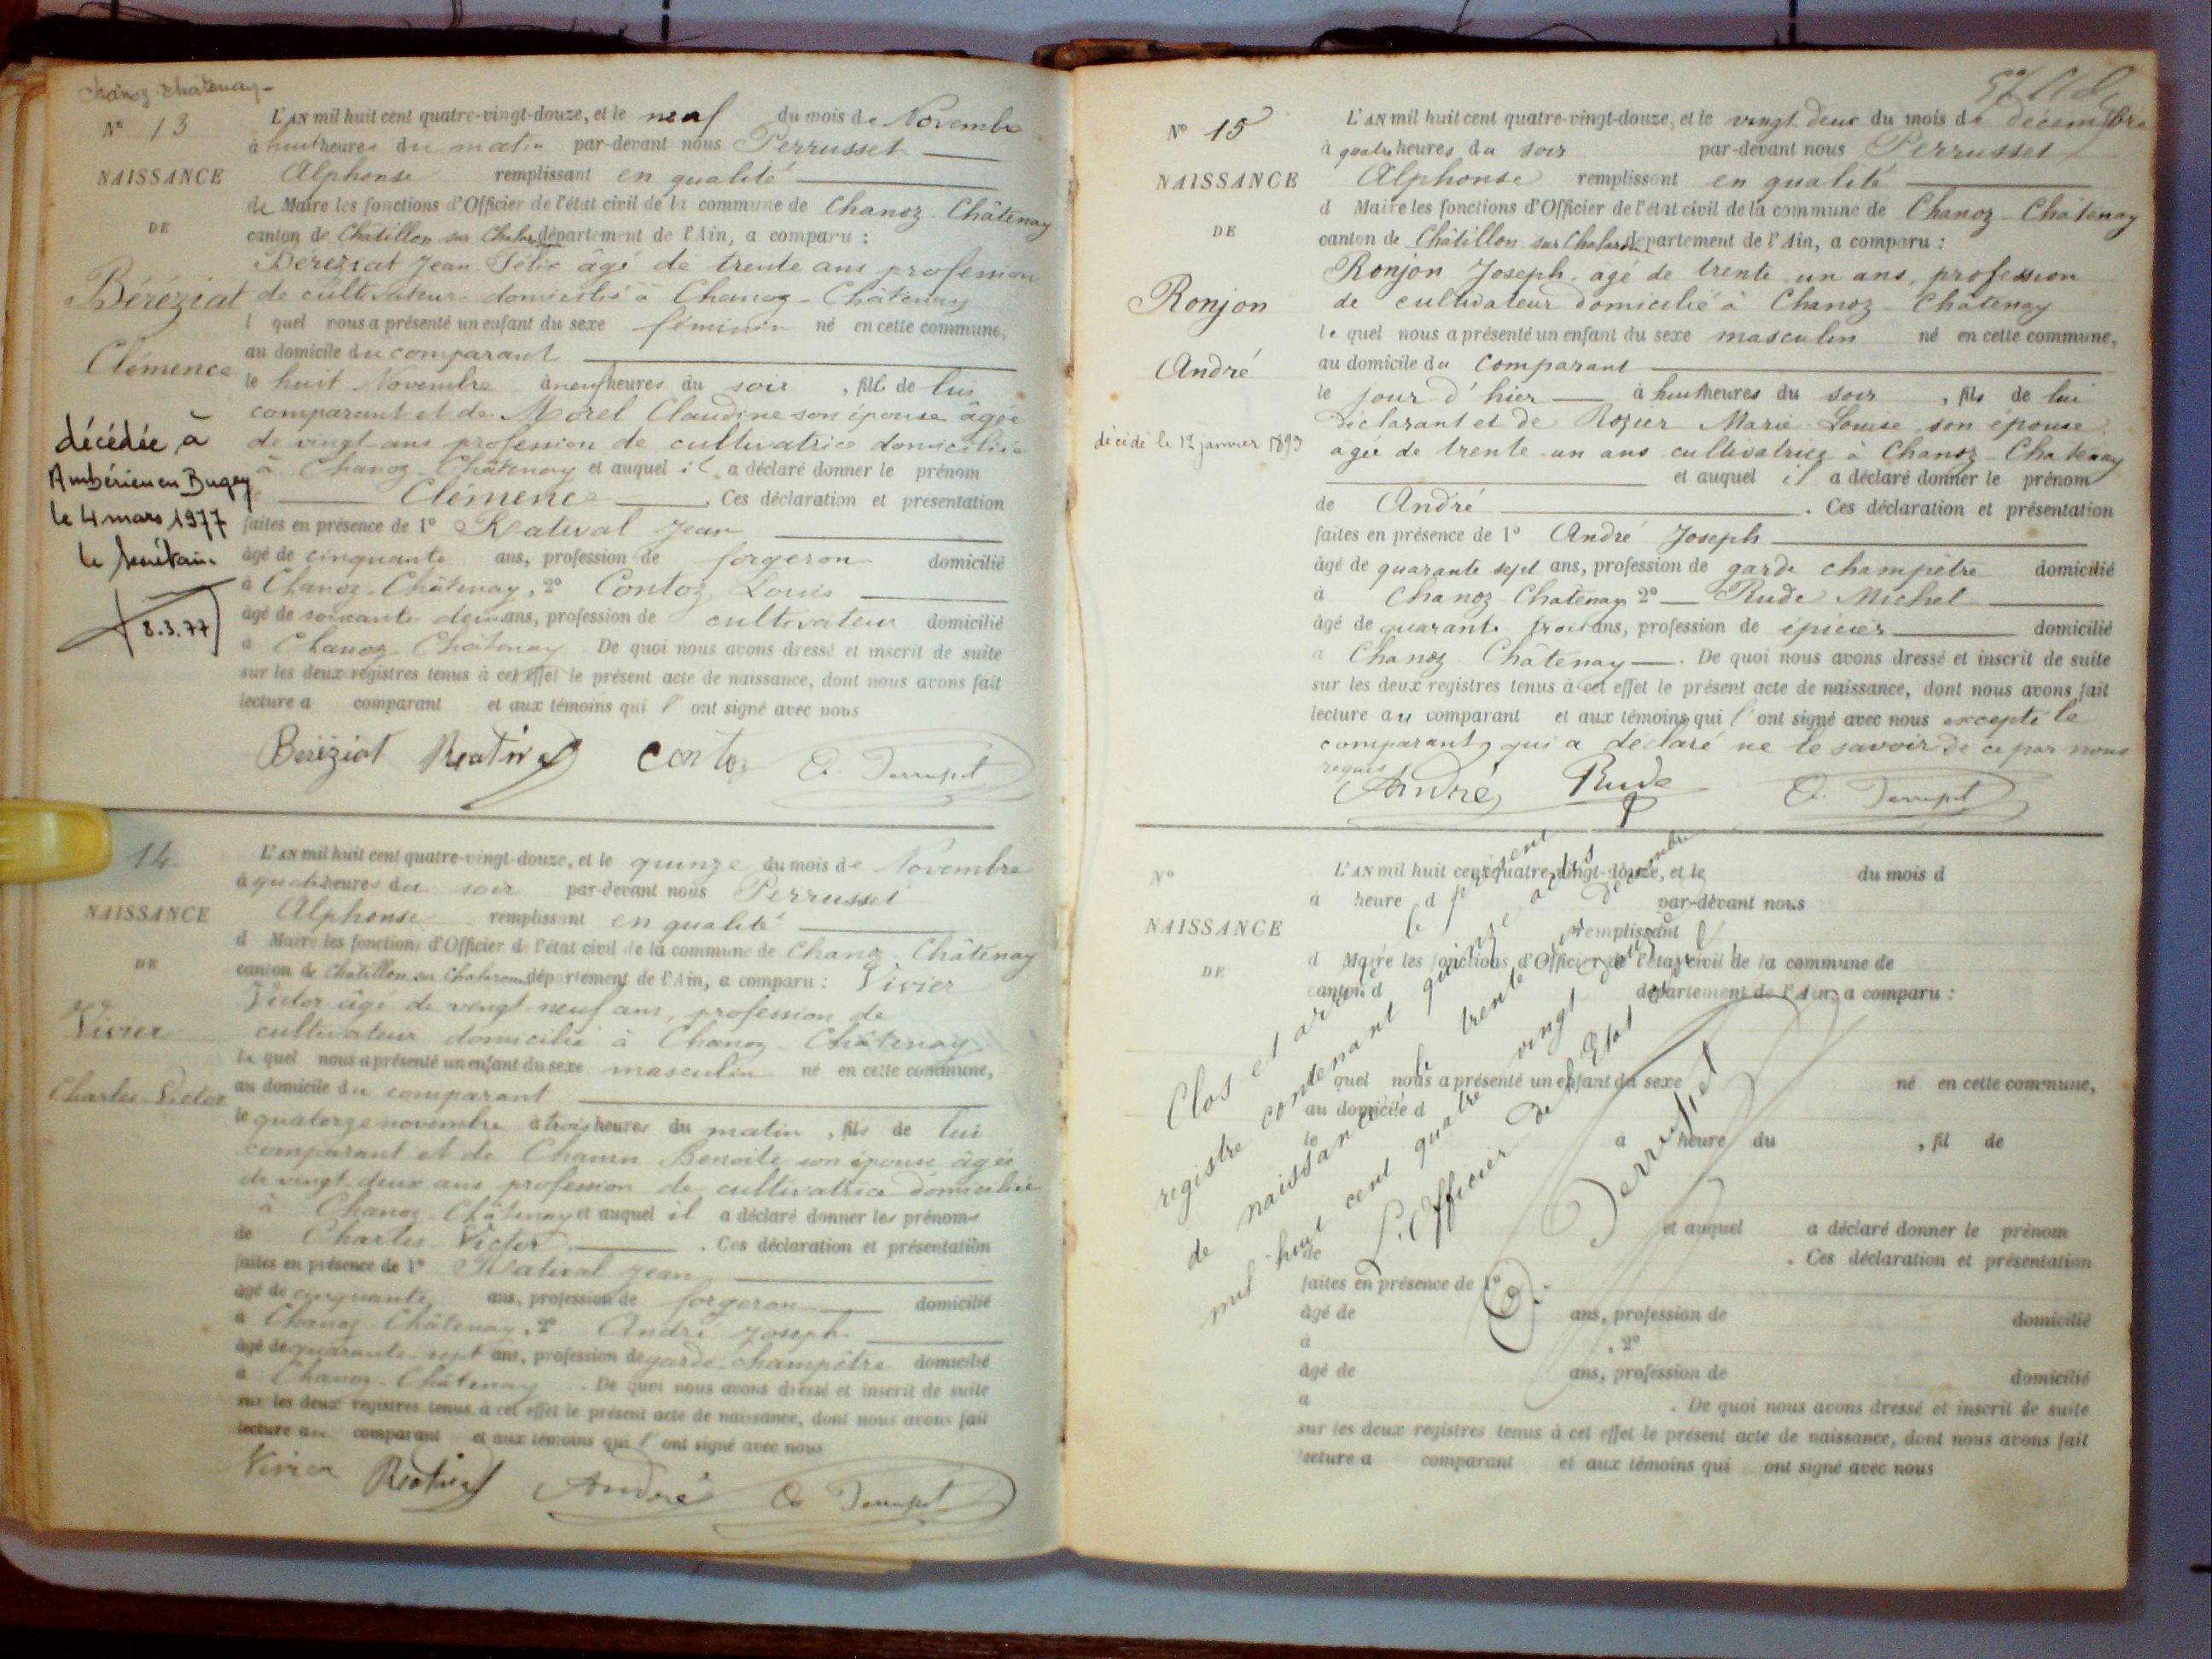 Chanoz-Chatenay-
N° 13
NAISSANCE
DE
Béréziat
Clémence
décédée à
Ambérieu en Bugey
le 4 mars 1977
le Secrétaire
8.3.77
L'AN mil huit cent quatre-vingt-douze, et le neuf du mois de Novembre
à huit heures du matin par-devant nous Perrusset
Alphonse remplissant en qualité
de Maire les fonctions d'Officier de l'état civil de la commune de Chanoz-Châtenay
canton de Châtillon sur Chalaronne département de l'Ain, a comparu :
Béréziat Jean-Félix âgé de trente ans profession
de cultivateur domicilié à Chanoz-Châtenay
l quel nous a présenté un enfant du sexe féminin né en cette commune,
au domicile du comparant
le huit Novembre à neuf heures du soir , fille de lui
comparant et de Morel Claudine son épouse âgée
de vingt ans profession de cultivatrice domiciliée
à Chanoz-Châtenay et auquel il a déclaré donner le prénom
Clémence . Ces déclaration et présentation
faites en présence de 1° Ratival Jean
âgé de cinquante ans, profession de forgeron domicilié
à Chanoz-Châtenay, 2° Contoz Louis
âgé de soixante deux ans, profession de cultivateur domicilié
à Chanoz Châtenay . De quoi nous avons dressé et inscrit de suite
sur les deux registres tenus à cet effet le présent acte de naissance, dont nous avons fait
lecture a comparant et aux témoins qui l' ont signé avec nous
Béréziat Ratival Contoz A. Perrusset
14.
NAISSANCE
DE
Vivier
Charles-Victor
L'AN mil huit cent quatre-vingt-douze, et le quinze du mois de Novembre
à quatre heures du soir par-devant nous Perrusset
Alphonse remplissant en qualité
d Maire les fonctions d'Officier de l'état civil de la commune de Chanoz-Châtenay
canton de Châtillon sur Chalaronne département de l'Ain, a comparu : Vivier
Victor âgé de vingt neuf ans, profession de
cultivateur domicilié à Chanoz-Châtenay
le quel nous a présenté un enfant du sexe masculin né en cette commune,
au domicile du comparant
le quatorze novembre à trois heures du matin , fils de lui
comparant et de Benoite son épouse âgée
de vingt deux ans profession de cultivatrice domiciliée
à Chanoz-Châtenay et auquel il a déclaré donner les prénoms
de Charles-Victor . Ces déclaration et présentation
faites en présence de 1° Ratival Jean
âgé de cinquante ans, profession de forgeron domicilié
à Chanoz-Châtenay, 2° André Joseph
âgé de quarante sept ans, profession de garde-champêtre domicilié
à Chanoz-Châtenay . De quoi nous avons dressé et inscrit de suite
sur les deux registres tenus à cet effet le présent acte de naissance, dont nous avons fait
lecture au comparant et aux témoins qui l' ont signé avec nous
Vivier Ratival André A. Perrusset
N° 15
NAISSANCE
DE
Ronjon
André
décédé le 12 janvier 1893
L'AN mil huit cent quatre-vingt-douze, et le vingt deux du mois de décembre
à quatre heures du soir par-devant nous Perrusset
Alphonse remplissant en qualité
d Maire les fonctions d'Officier de l'état civil de la commune de Chanoz-Châtenay
canton de Châtillon sur Chalaronne département de l'Ain, a comparu :
Ronjon Joseph âgé de trente un ans, profession
de cultivateur domicilié à Chanoz-Châtenay
le quel nous a présenté un enfant du sexe masculin né en cette commune,
au domicile du comparant
le jour d'hier à huit heures du soir , fils de lui
déclarant et de Rozier Marie-Louise son épouse
agée de trente un ans cultivatrice à Chanoz-Chatenay
et auquel il a déclaré donner le prénom
de André . Ces déclaration et présentation
faites en présence de 1° André Joseph
âgé de quarante sept ans, profession de garde champêtre domicilié
à Chanoz-Chatenay 2° Rude Michel
âgé de quarante trois ans, profession de épicier domicilié
a Chanoz Châtenay . De quoi nous avons dressé et inscrit de suite
sur les deux registres tenus à cet effet le présent acte de naissance, dont nous avons fait
lecture au comparant et aux témoins qui l'ont signé avec nous excepté le
comparant, qui a déclaré ne le savoir de ce par nous
requis
André Rude A. Perrusset
N°
NAISSANCE
DE
L'AN mil huit cent quatre-vingt-douze, et le du mois d
à heure d par-devant nous
remplissant
d Maire les fonctions d'Officier de l'état civil de la commune de
canton d département de l'Ain, a comparu :
quel nous a présenté un enfant du sexe né en cette commune,
au domicile d
le à heure du , fil de
et auquel a déclaré donner le prénom
de . Ces déclaration et présentation
faites en présence de 1°
âgé de ans, profession de domicilié
à , 2°
âgé de ans, profession de domicilié
a . De quoi nous avons dressé et inscrit de suite
sur les deux registres tenus à cet effet le présent acte de naissance, dont nous avons fait
lecture a comparant et aux témoins qui ont signé avec nous
Clos et arrêté le présent
registre contenant quinze actes
de naissance le trente un Décembre
mil huit cent quatre vingt douze
L'Officier de l'Etat civil
A. Perrusset